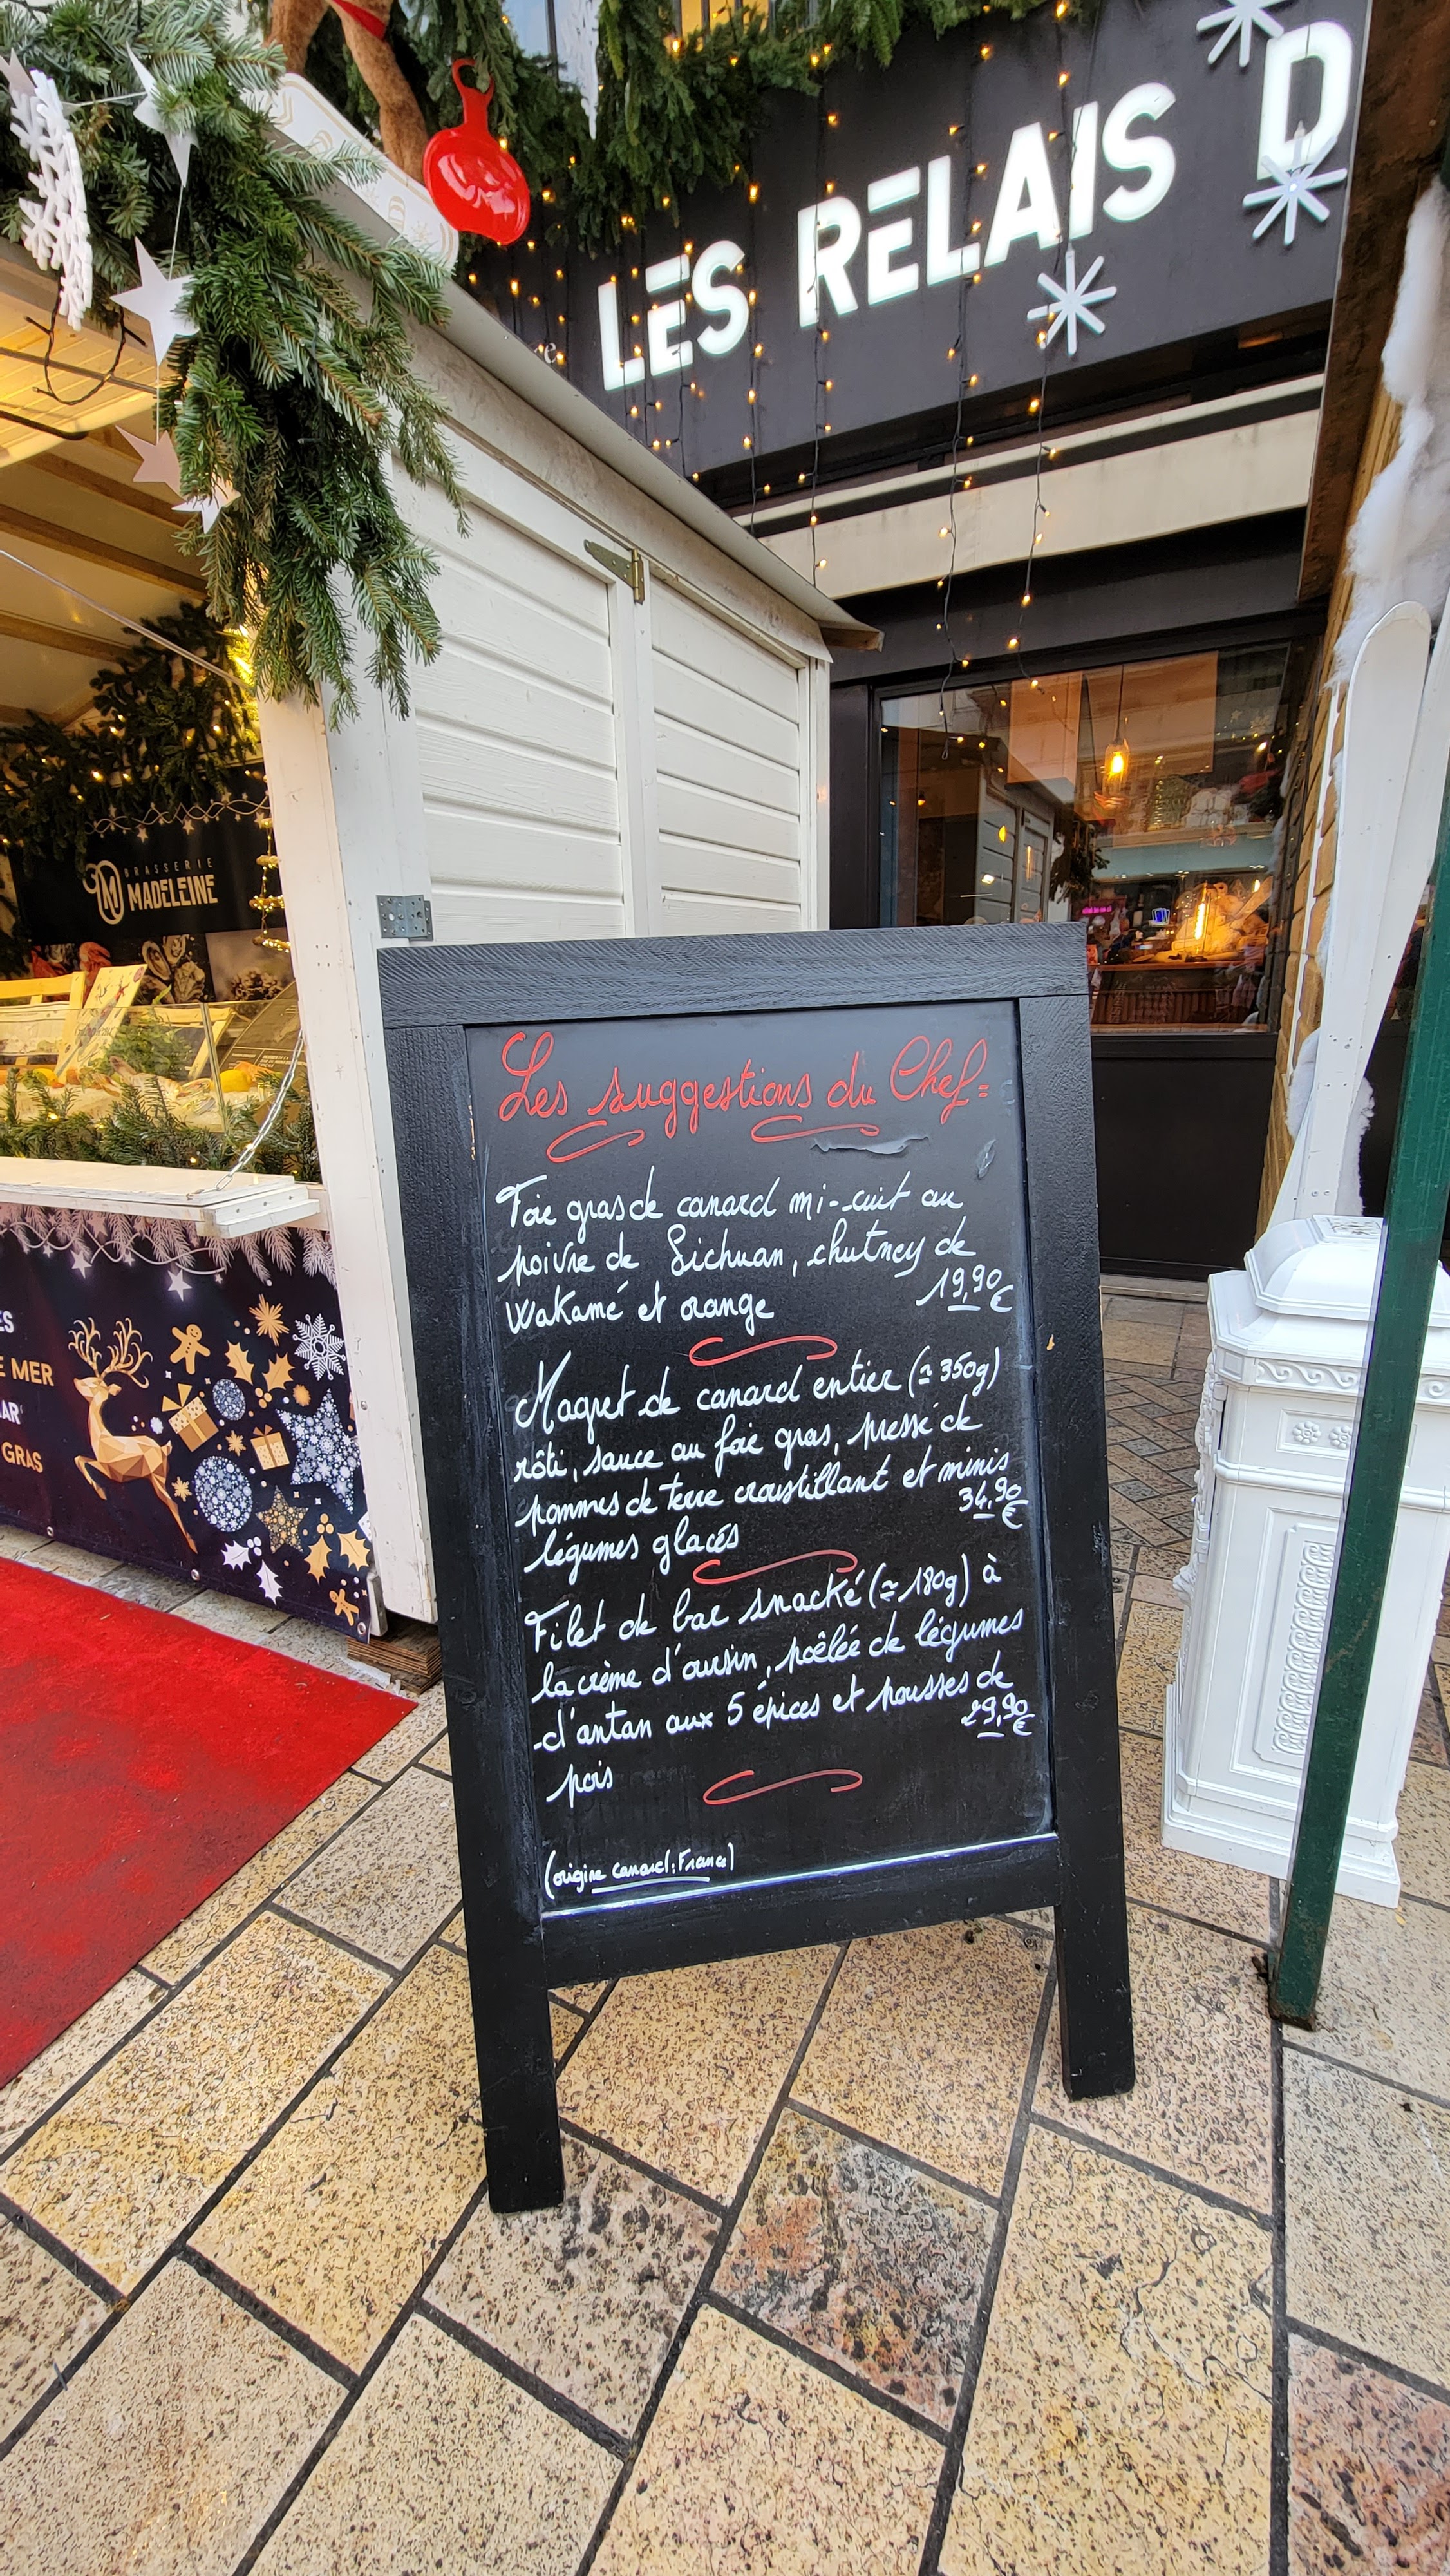 LES RELAIS D
BRASSERIE
MADELEINE
Les suggestions du Chef=
Foie gras de canard mi-cuit au
poivre de Sichuan, chutney de
Wakamé et orange
19,90€
Magret de canard entier (≃ 350g)
rôti, sauce au foie gras, pressé de
pommes de terre croustillant et minis
34,90€
légumes glacés
Filet de bar snacké (≃ 180g) à
la crème d'oursin, poêlée de légumes
d'antan aux 5 épices et pousses de
29,90€
pois
(origine canard: France)
ES
E MER
AR
GRAS